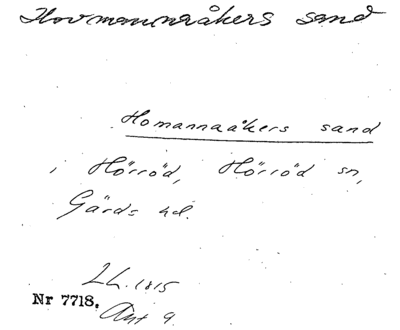 Hovmannaåkers sand
Homannaåkers sand
i Hörröd, Hörröd sn,
Gärds hd.
LL. 1815
Nr 7718.
Akt 9.